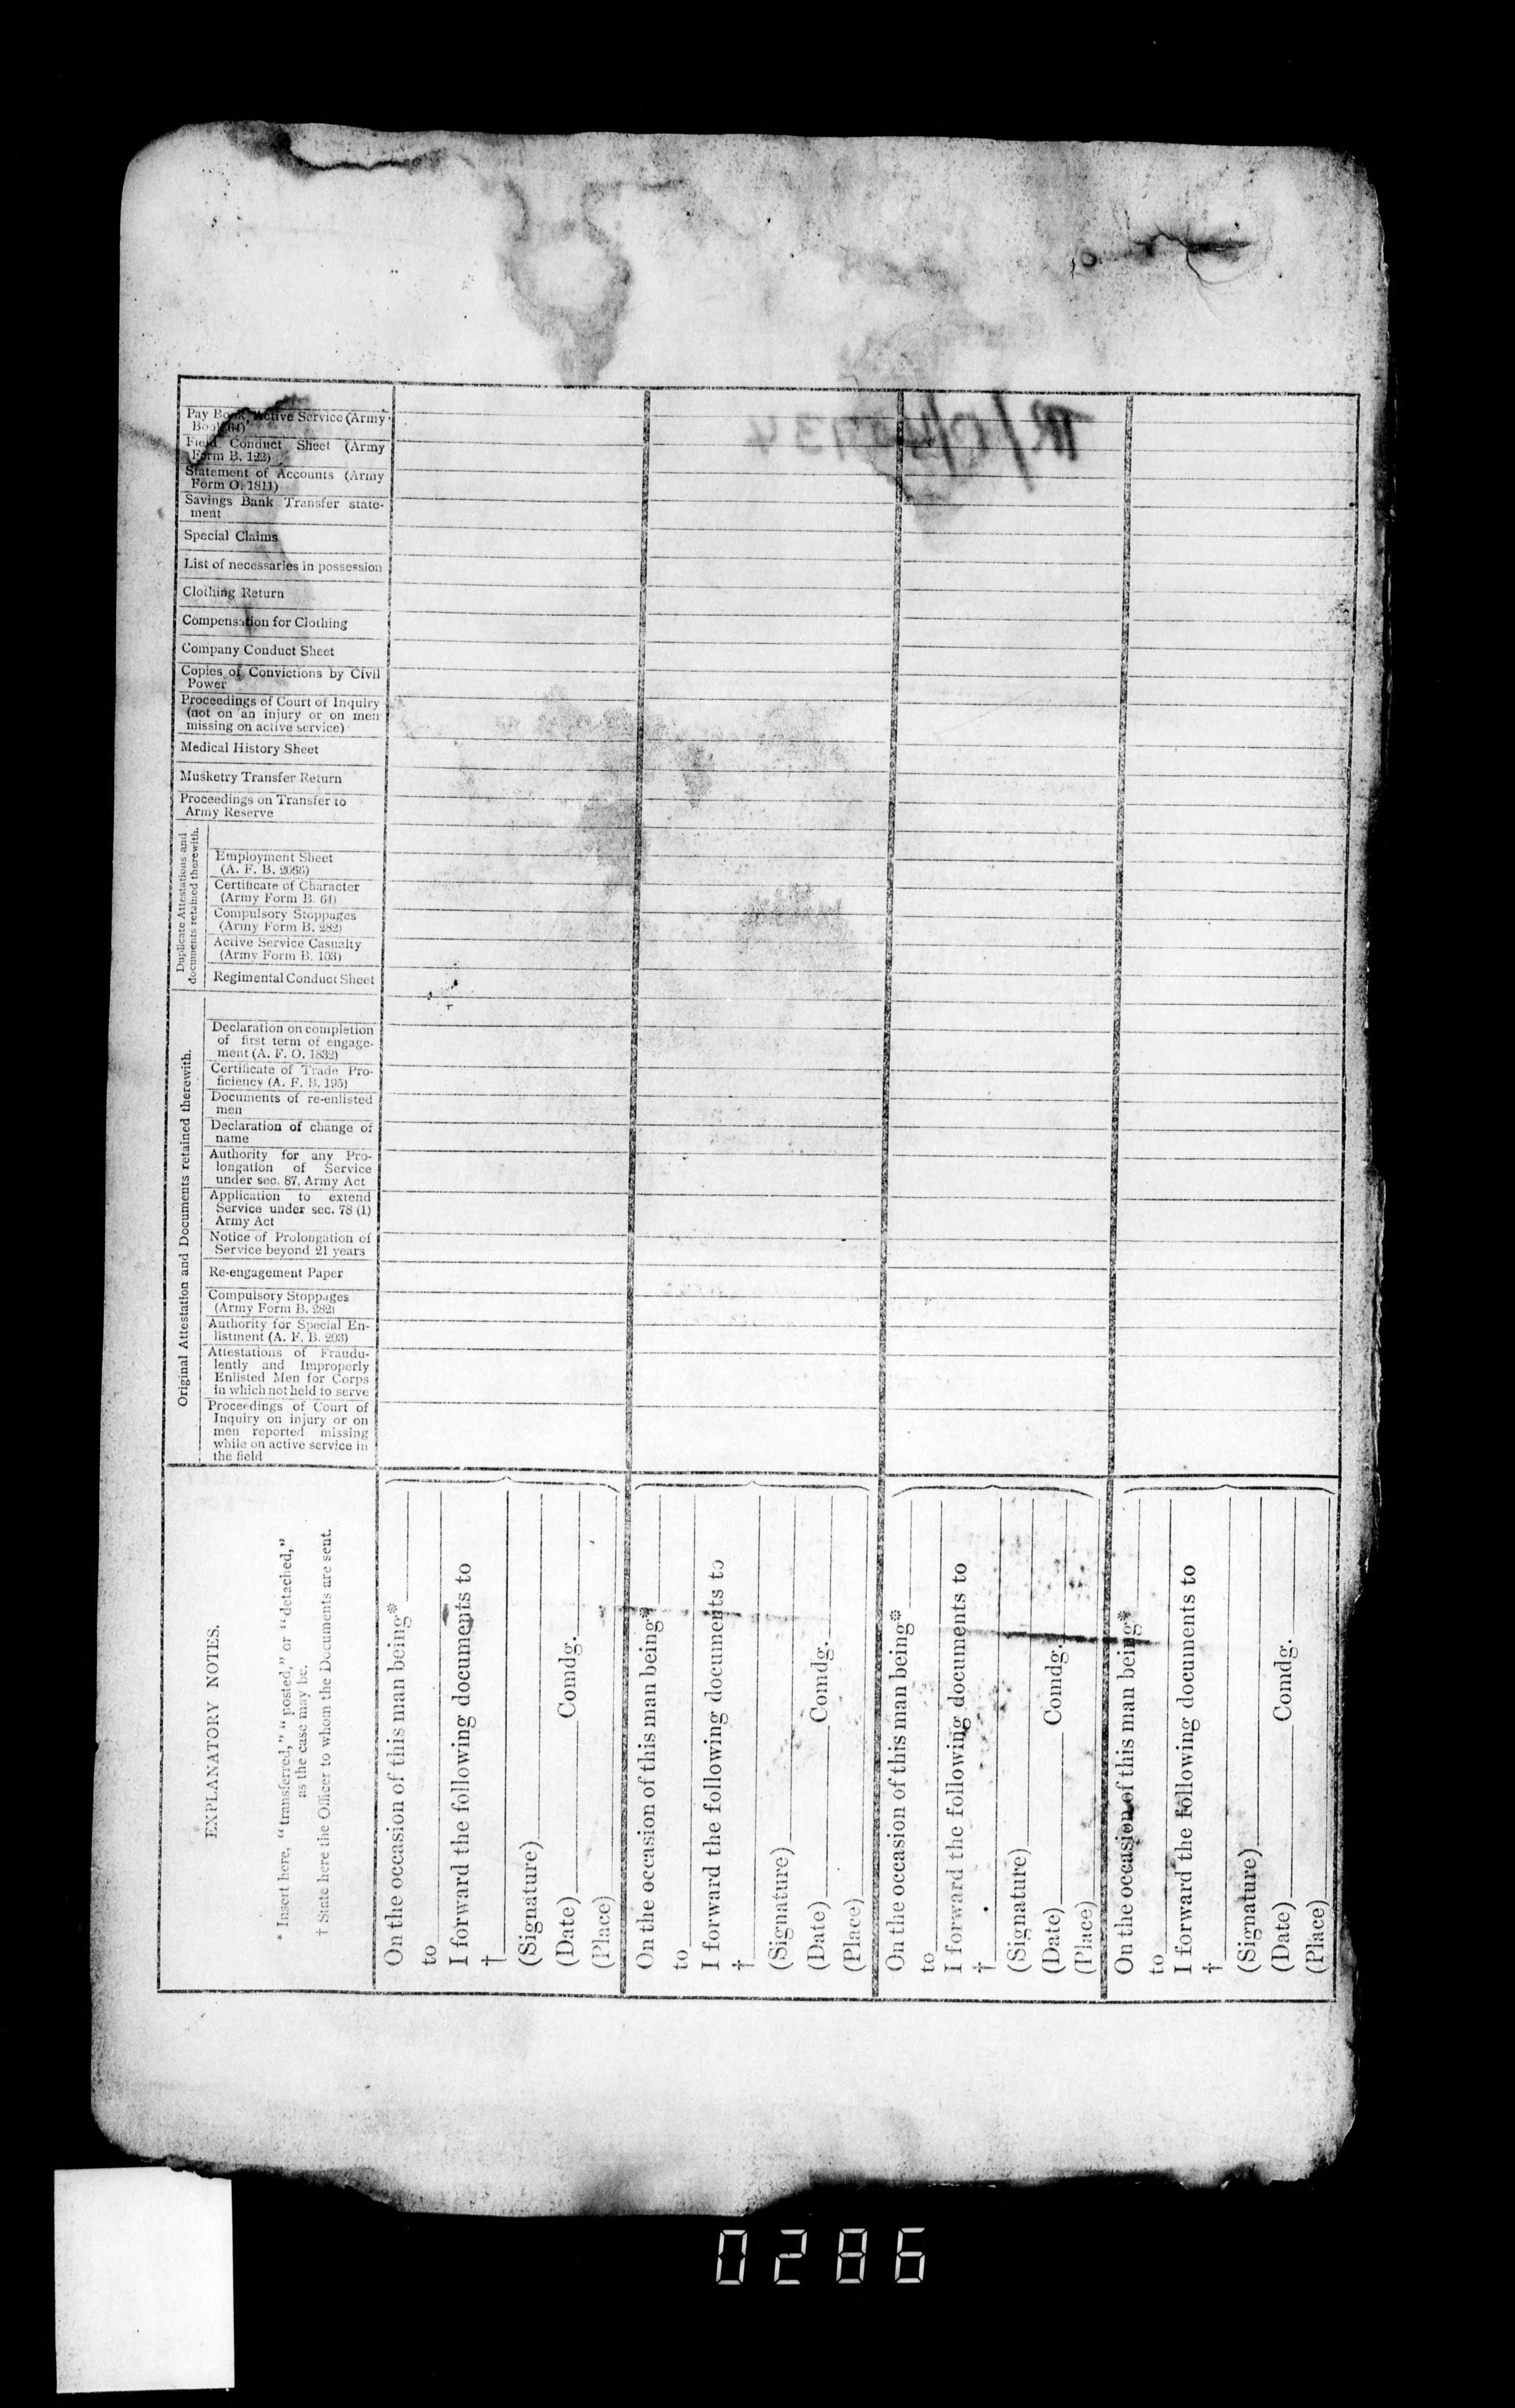 Pay Book, Active Service (Army
Book 64)
Field Conduct Sheet (Army
Form B. 122)
Statement of Accounts (Army
Form O. 1811)
Savings Bank Transfer state-
ment
Special Claims
List of necessaries in possession
Clothing Return
Compensation for Clothing
Company Conduct Sheet
Copies of Convictions by Civil
Power
Proceedings of Court of Inquiry
(not on an injury or on men
missing on active service)
Medical History Sheet
Musketry Transfer Return
Proceedings on Transfer to
Army Reserve
Duplicate Attestations and
documents retained therewith.
Employment Sheet
(A. F. B. 2066)
Certificate of Character
(Army Form B. 64)
Compulsory Stoppages
(Army Form B. 282)
Active Service Casualty
(Army Form B. 103)
Regimental Conduct Sheet
Original Attestation and Documents retained therewith.
Declaration on completion
of first term of engage-
ment (A. F. O. 1832)
Certificate of Trade Pro-
ficiency (A. F. B. 195)
Documents of re-enlisted
men
Declaration of change of
name
Authority for any Pro-
longation of Service
under sec. 87, Army Act
Application to extend
Service under sec. 78 (1)
Army Act
Notice of Prolongation of
Service beyond 21 years
Re-engagement Paper
Compulsory Stoppages
(Army Form B. 282)
Authority for Special En-
listment (A. F. B. 203)
Attestations of Fraudu-
lently and Improperly
Enlisted Men for Corps
in which not held to serve
Proceedings of Court of
Inquiry on injury or on
men reported missing
while on active service in
the field
EXPLANATORY NOTES.
* Insert here, "transferred," "posted," or "detached,"
as the case may be.
† State here the Officer to whom the Documents are sent.
On the occasion of this man being*
to
I forward the following documents to
†
(Signature)
(Date) Comdg.
(Place)
On the occasion of this man being*
to
I forward the following documents to
†
(Signature)
(Date) Comdg.
(Place)
On the occasion of this man being*
to
I forward the following documents to
†
(Signature)
(Date) Comdg.
(Place)
On the occasion of this man being*
to
I forward the following documents to
†
(Signature)
(Date) Comdg.
(Place)
0286